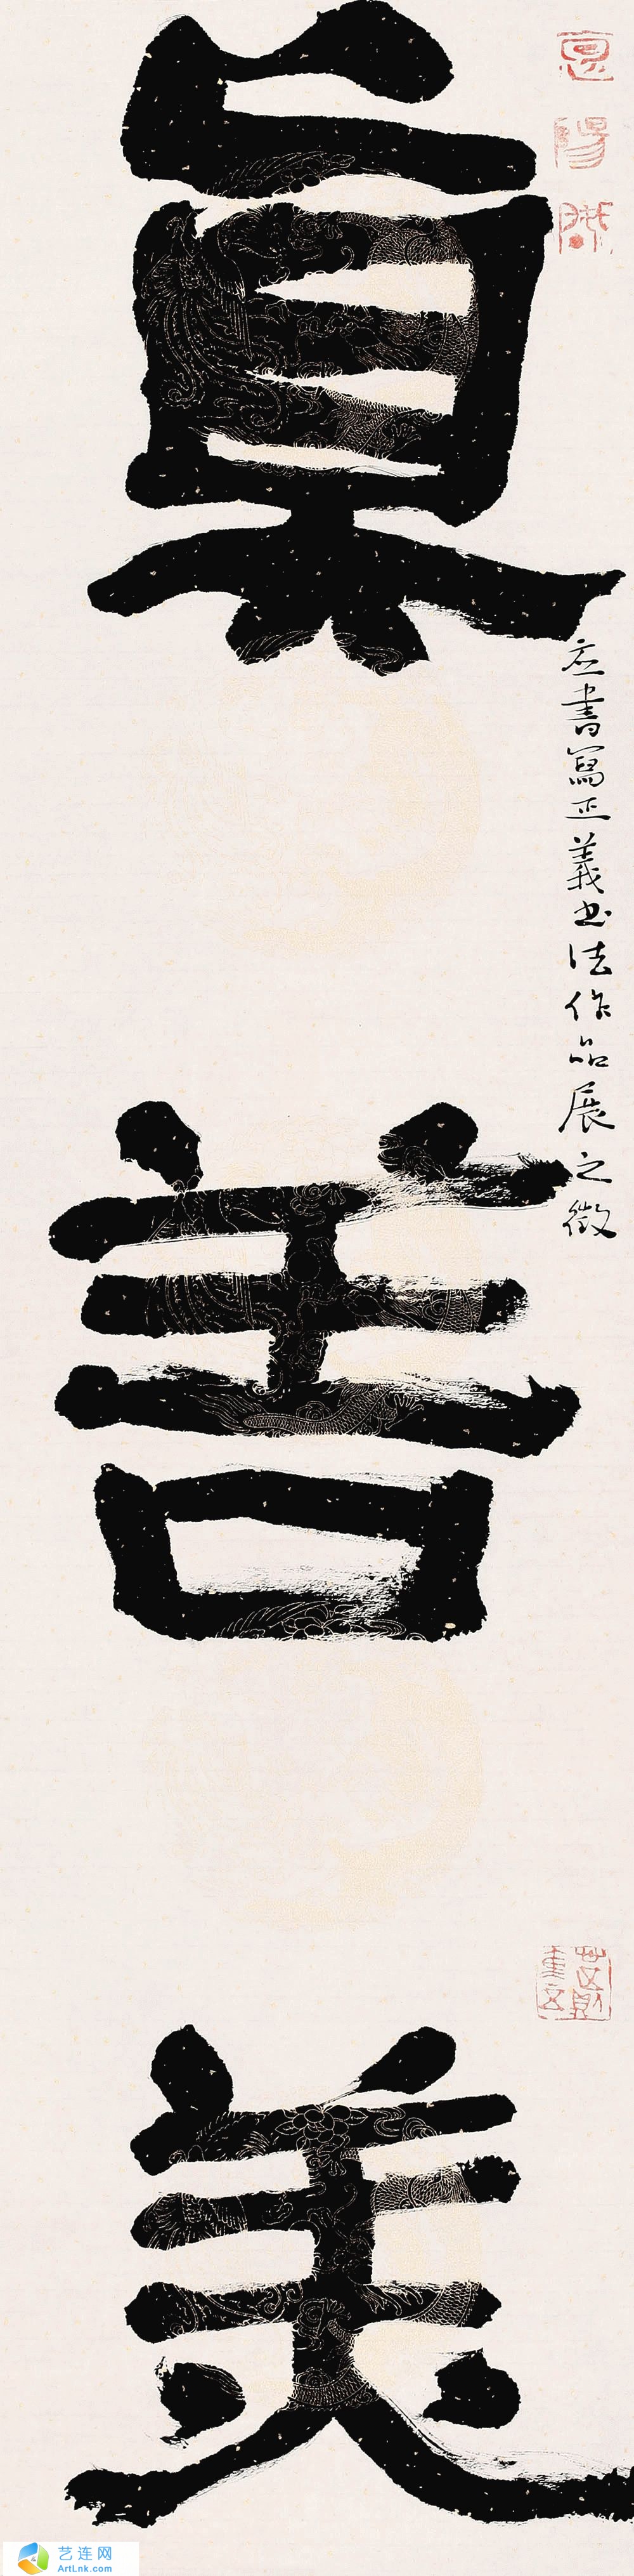 眞善美
应書寫正義书法作品展之徵
艺连网
ArtLnk.com